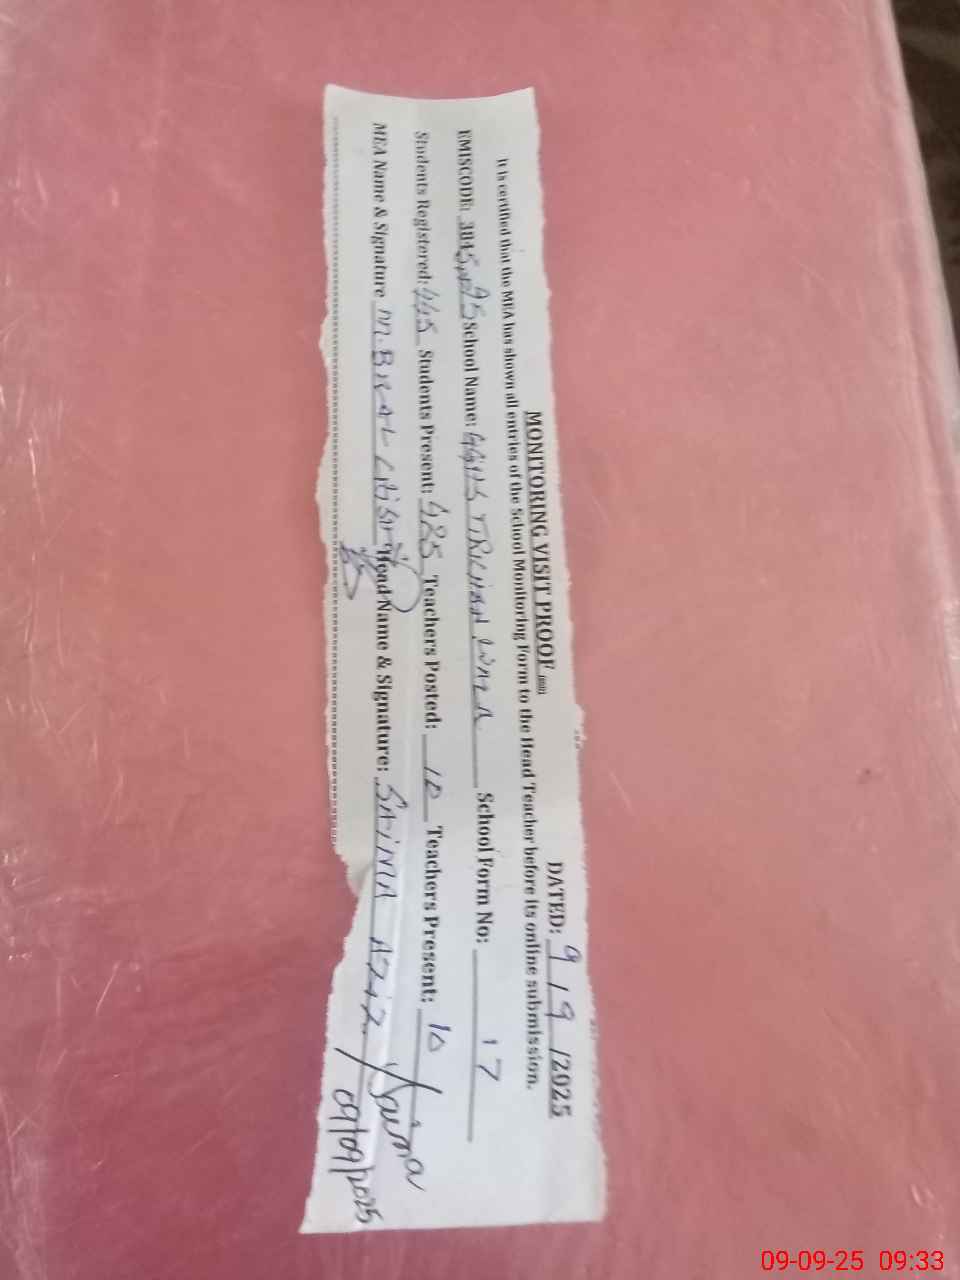 MONITORING VISIT PROOF
DATED: 9/9/2025
It is certified that the MEA has shown all entries of the School Monitoring Form to the Head Teacher before its online submission.
EMISCODE: School Name: School Form No: 17
Students Registered: 445 Students Present: 425 Teachers Posted: 10 Teachers Present: 10
MEA Name & Signature M. Head Name & Signature: SAIMA AZIZ Saima
09/09/2025
09-09-25 09:33